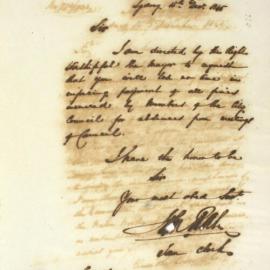 Sydney 11th Decr. 1845
Sir
I am directed by the Right
Worshipful the Mayor to request
that you will lose no time in
enforcing payment of all fines
incurred by Members of the City
Council for absences from meetings
of Council.
I have the honor to be
Sir
Your most obed Servt
Town Clerk